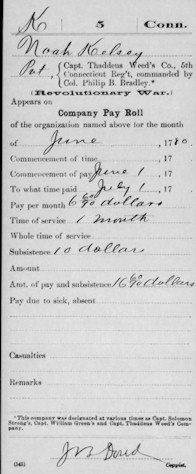 K 5 Conn.
Noah Kelsey
Pvt, Capt. Thaddeus Weed's Co., 5th
Connecticut Reg't, commanded by
Col. Philip B. Bradley.*
(Revolutionary War.)
Appears on
Company Pay Roll
of the organization named above for the month
of June, 1780.
Commencement of time, 17
Commencement of pay June 1, 17
To what time paid July 1, 17
Pay per month 6 60/90 dollars
Time of service 1 month
Whole time of service
Subsistence 10 dollars
Amount
Amt. of pay and subsistence 16 60/90 dollars
Pay due to sick, absent
Casualties
Remarks
*This company was designated at various times as Capt. Solomon
Strong's, Capt. William Green's and Capt. Thaddeus Weed's Com-
pany.
(545) Copyist.